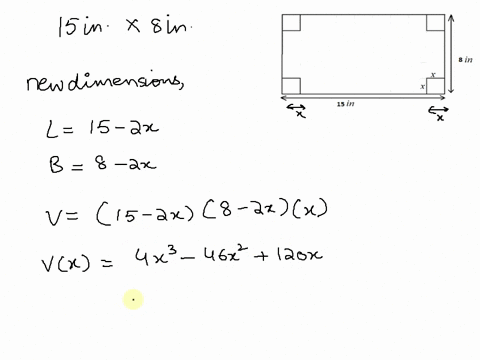 15 in. × 8 in.
new dimensions,
L = 15 - 2x
B = 8 - 2x
V = (15 - 2x) (8 - 2x) (x)
V(x) = 4x³ - 46x² + 120x
8 in
x
x
15 in
x
x